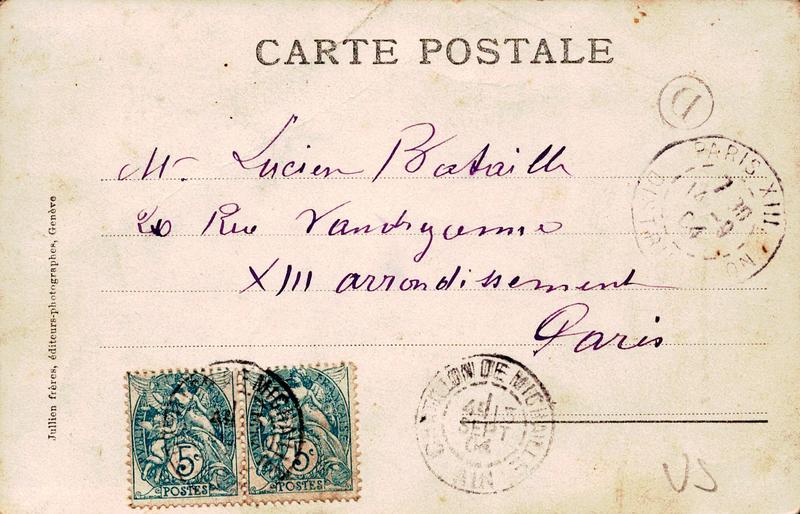 CARTE POSTALE
D
PARIS XIII
DISTRIBUTION
7 35
14 - 9
04
Mr Lucien Bataille
20 Rue Vandrezanne
XIII arrondissement
Paris
Jullien frères, éditeurs-photographes, Genève
5c
POSTES
5c
POSTES
CHATILLON DE MICHAILLE
SEPT
04
AIN
VS